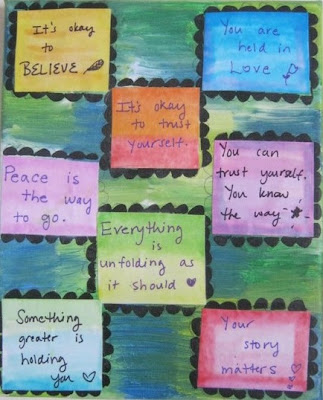 It's okay
to
BELIEVE
You are
held in
Love
It's okay
to trust
yourself.
You can
trust yourself.
You know
the way
Peace is
the way
to go.
Everything
is
unfolding as
it should
Something
greater is
holding
you
Your
story
matters